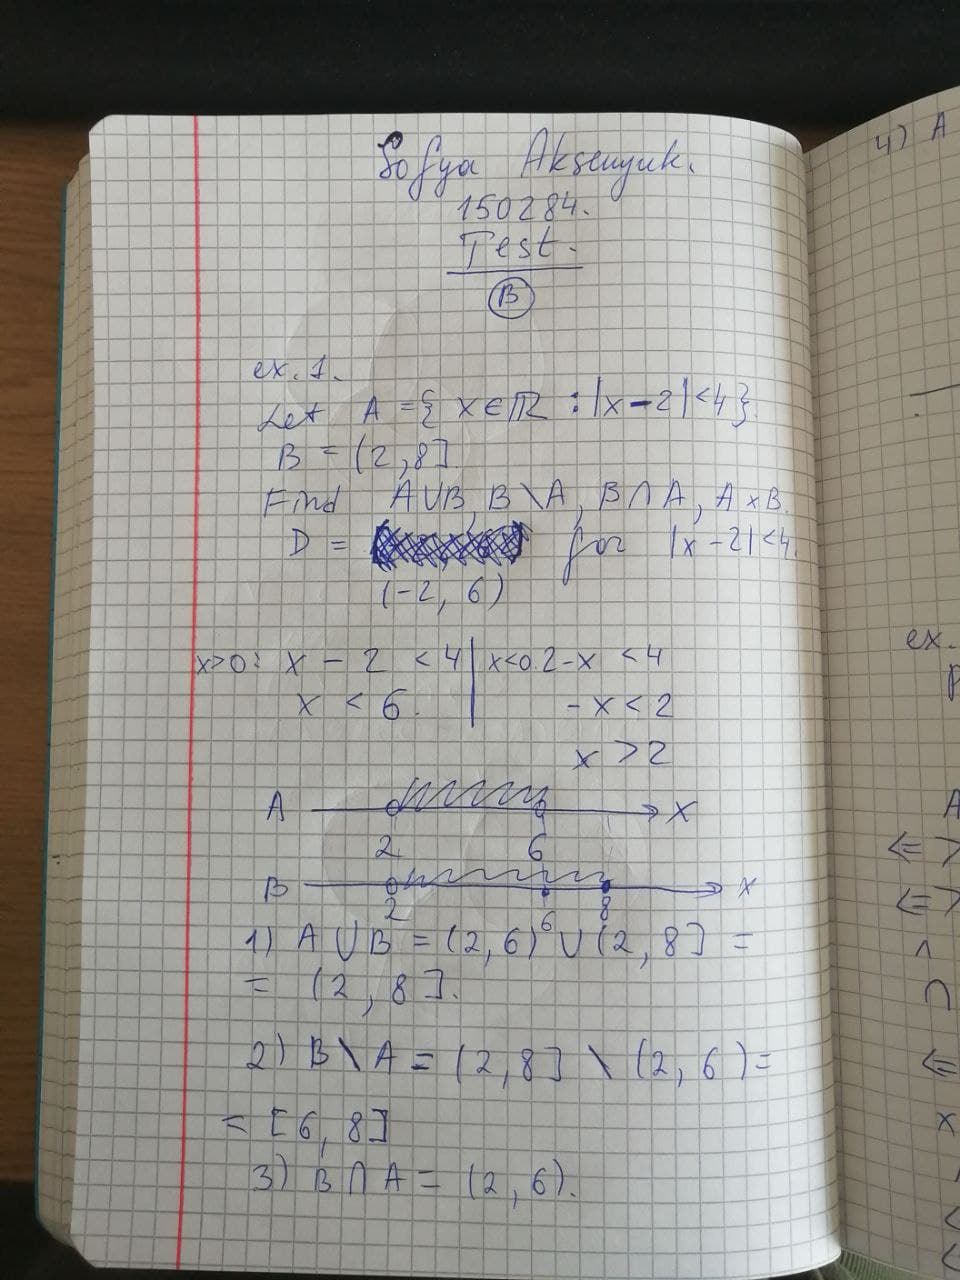 Sofya Aksenyuk.
150284.
Test.
B
ex. 1.
Let A = { x ∈ ℝ : |x - 2| < 4 }.
B = (2, 8].
Find A ∪ B, B \ A, B ∩ A, A × B.
D = for |x - 2| < 4.
(-2, 6)
x>0: x - 2 < 4 | x<0. 2 - x < 4
x < 6. - x < 2
x > 2
A x
2 6
B x
2 6 8
1) A ∪ B = (2, 6) ∪ (2, 8] =
= (2, 8].
2) B \ A = (2, 8] \ (2, 6) =
= [6, 8]
3) B ∩ A = (2, 6).
4) A
ex.
A
⇐
⇐
∧
∩
⇐
x